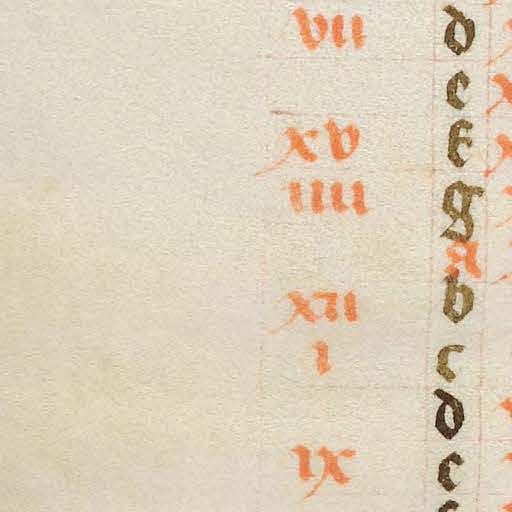 vii d
e
xv f
iiii g
a
xii b
i c
d
ix e